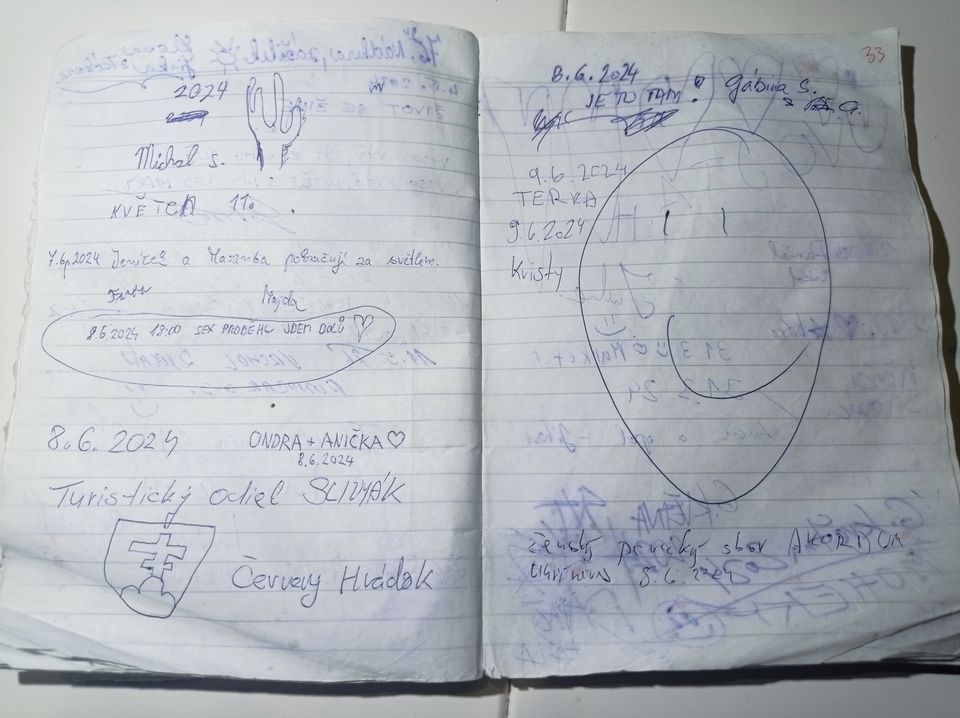 2024
Michal S.
KVĚTEN 11.
7.6.2024 Jeníček a Mařenka pokračují za světlem.
Majda
8.6.2024 19:00 SEX PROBĚHL JDEM DOLŮ ♡
8.6.2024
ONDRA + ANIČKA ♡
8.6.2024
Turistický odiel SLIMÁK
Červený Hrádok
33
8.6.2024
JE TO TAM! Gábina S.
9.6.2024
TERKA
9.6.2024
Kvisty
ženský pěvecký sbor AKORDUM
8.6.2024